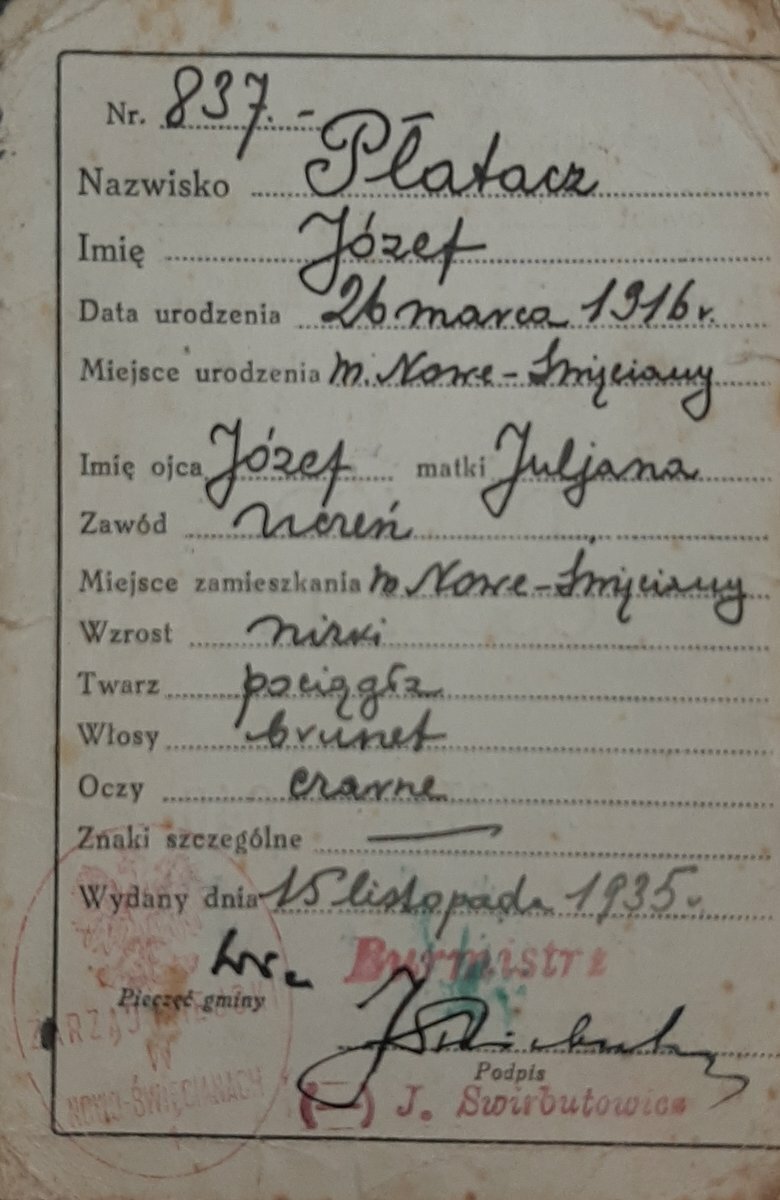 Nr. 837.-
Nazwisko Płatacz
Imię Józef
Data urodzenia 26 marca 1916 r.
Miejsce urodzenia m. Nowe-Święciany
Imię ojca Józef matki Juljana
Zawód uczeń
Miejsce zamieszkania m Nowe-Święciany
Wzrost nizki
Twarz pociągła
Włosy brunet
Oczy czarne
Znaki szczególne —
Wydany dnia 15 listopada 1935 r.
Burmistrz
Pieczęć gminy
ZARZĄD MIEJSKI
W
NOWO-ŚWIĘCIANACH
Podpis
(—) J. Swirbutowicz